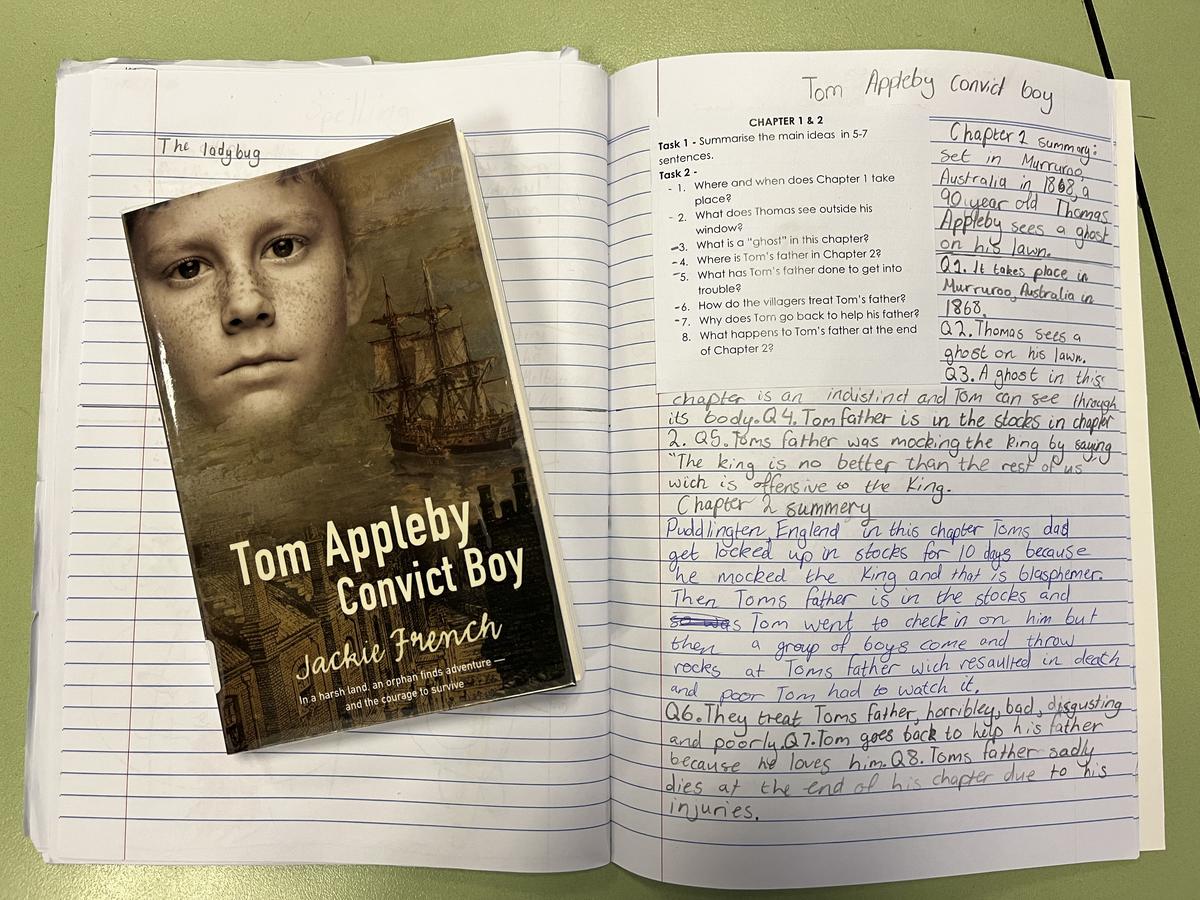 The ladybug
Tom Appleby
Convict Boy
Jackie French
In a harsh land, an orphan finds adventure —
and the courage to survive
Tom Appleby Convict boy
CHAPTER 1 & 2
Task 1 - Summarise the main ideas in 5-7
sentences.
Task 2 -
1. Where and when does Chapter 1 take
place?
2. What does Thomas see outside his
window?
3. What is a "ghost" in this chapter?
4. Where is Tom's father in Chapter 2?
5. What has Tom's father done to get into
trouble?
6. How do the villagers treat Tom's father?
7. Why does Tom go back to help his father?
8. What happens to Tom's father at the end
of Chapter 2?
Chapter 1 summary:
set in Murruroo,
Australia in 1868, a
90 year old Thomas
Appleby sees a ghost
on his lawn.
Q1. It takes place in
Murruroo, Australia in
1868.
Q2. Thomas sees a
ghost on his lawn.
Q3. A ghost in this
chapter is an indistinct and Tom can see through
its body. Q4. Tom father is in the stocks in chapter
2. Q5. Toms father was mocking the king by saying
"The king is no better than the rest of us
wich is offensive to the King.
Chapter 2 summery
Puddlington, Englend in this chapter Toms dad
get locked up in stocks for 10 days because
he mocked the King and that is blasphemer.
Then Toms father is in the stocks and
Tom went to check in on him but
then a group of boys come and throw
rocks at Toms father wich resaulted in death
and poor Tom had to watch it.
Q6. They treat Toms father, horribley, bad, disgusting
and poorly. Q7. Tom goes back to help his father
because he loves him. Q8. Toms father sadly
dies at the end of his chapter due to his
injuries.